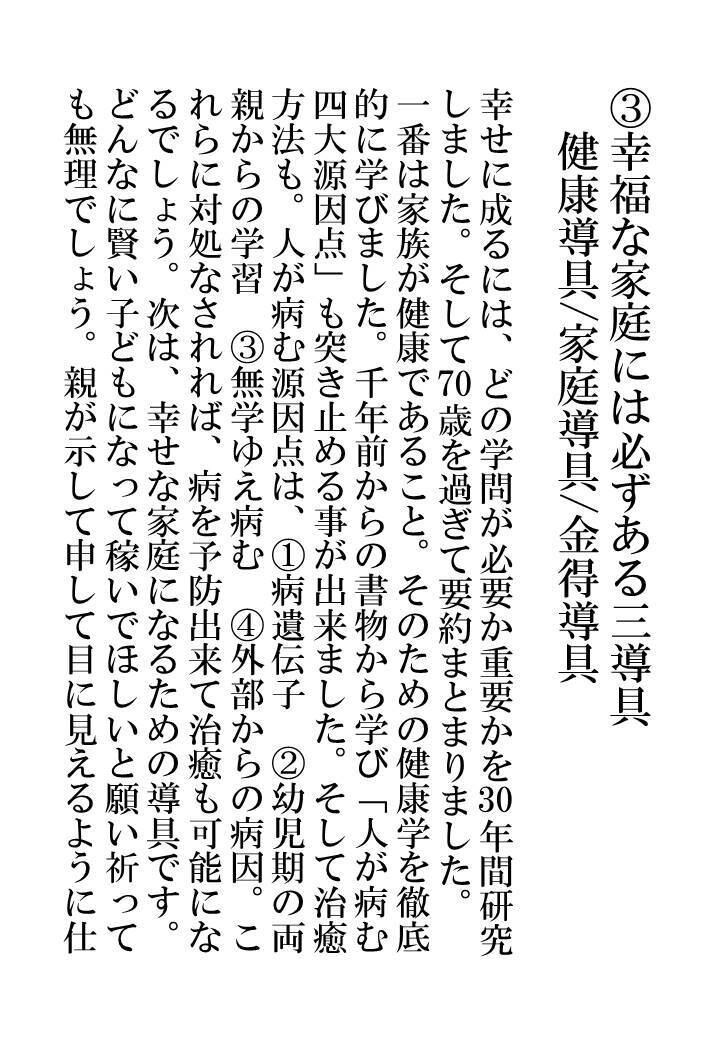 ③幸福な家庭には必ずある三導具
健康導具/家庭導具/金得導具
幸せに成るには、どの学問が必要か重要かを30年間研究
しました。そして70歳を過ぎて要約まとまりました。
一番は家族が健康であること。そのための健康学を徹底
的に学びました。千年前からの書物から学び「人が病む
四大源因点」も突き止める事が出来ました。そして治癒
方法も。人が病む源因点は、①病遺伝子　②幼児期の両
親からの学習　③無学ゆえ病む　④外部からの病因。こ
れらに対処なされれば、病を予防出来て治癒も可能にな
るでしょう。次は、幸せな家庭になるための導具です。
どんなに賢い子どもになって稼いでほしいと願い祈って
も無理でしょう。親が示して申して目に見えるように仕